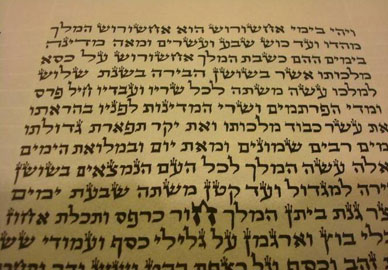 ויהי בימי אחשורוש הוא אחשורוש המלך
מהדו ועד כוש שבע ועשרים ומאה מדינה
בימים ההם כשבת המלך אחשורוש על כסא
מלכותו אשר בשושן הבירה בשנת שלוש
למלכו עשה משתה לכל שריו ועבדיו חיל פרס
ומדי הפרתמים ושרי המדינות לפניו בהראתו
את עשר כבוד מלכותו ואת יקר תפארת גדולתו
ימים רבים שמונים ומאת יום ובמלואת הימים
אלה עשה המלך לכל העם הנמצאים בשושן
ירה למגדול ועד קטן משתה שבעת ימים
ר גנת ביתן המלך חור כרפס ותכלת אחוז
לי בוץ וארגמן על גלילי כסף ועמודי שש
זהב וכסף על רצפת